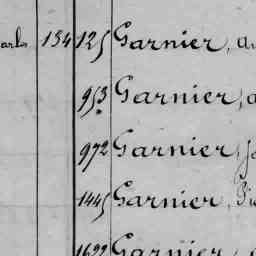 arls 134 125 Garnier, au
953 Garnier, a
972 Garnier, J
1445 Garnier, Pi
1622 Garnier,